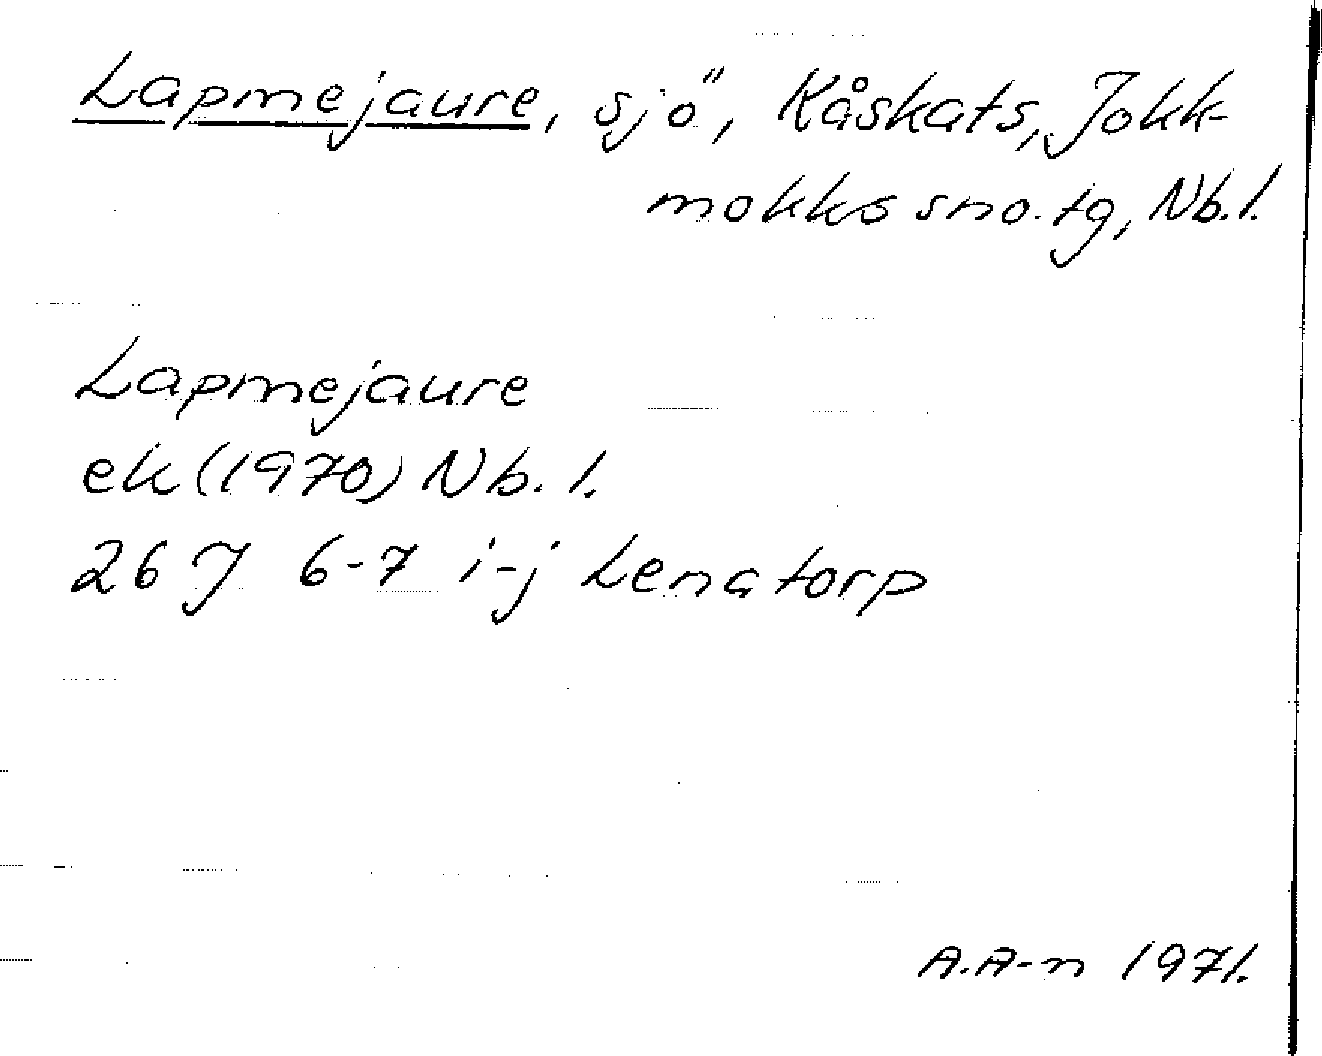 Lapmejaure, sjö, Kåskats, Jokk-
mokks sno. tg, Nb. l.
Lapmejaure
ek (1970) Nb. l.
26 J 6-7 i-j Lenatorp
A.A-n 1971.